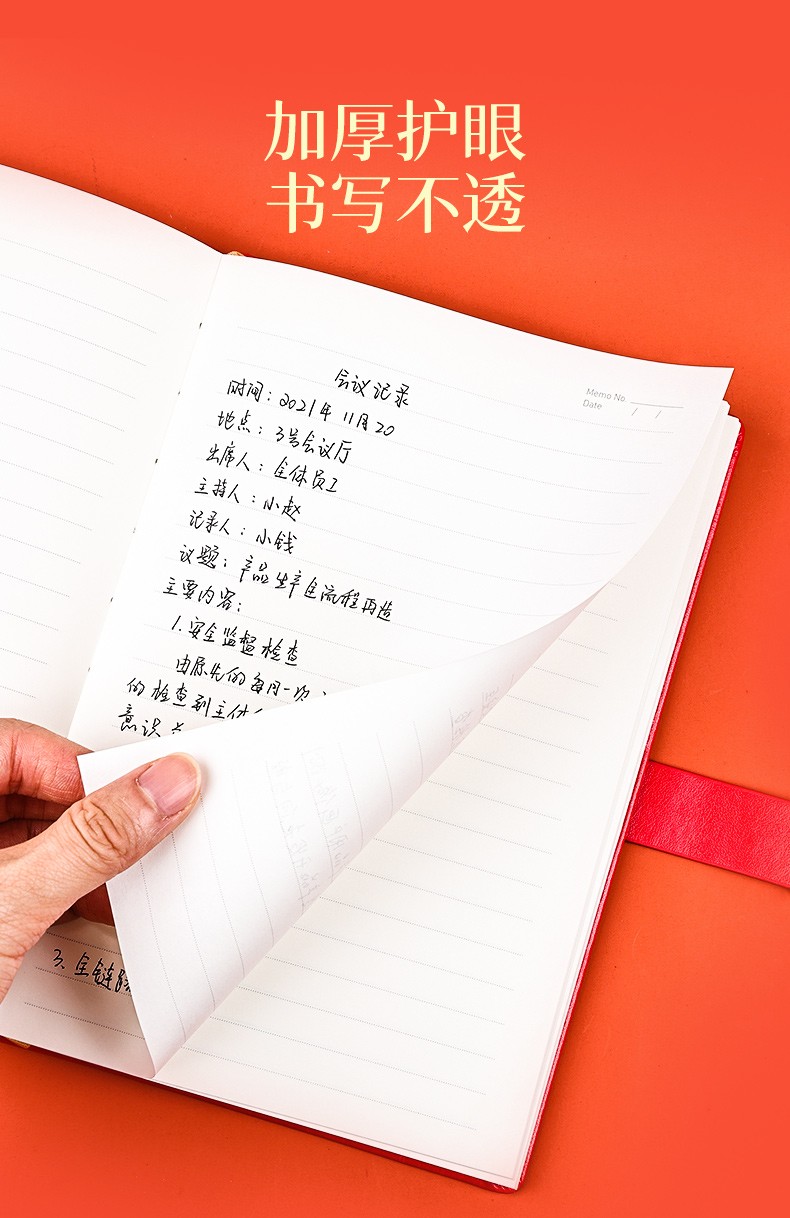 加厚护眼
书写不透
会议记录
Memo No.
Date / /
时间：2021年11月20
地点：3号会议厅
出席人：全体员工
主持人：小赵
记录人：小钱
议题：产品生产全流程再造
主要内容：
1.安全监督检查
由原先的每月一次
的检查到主体
意识
3.全链